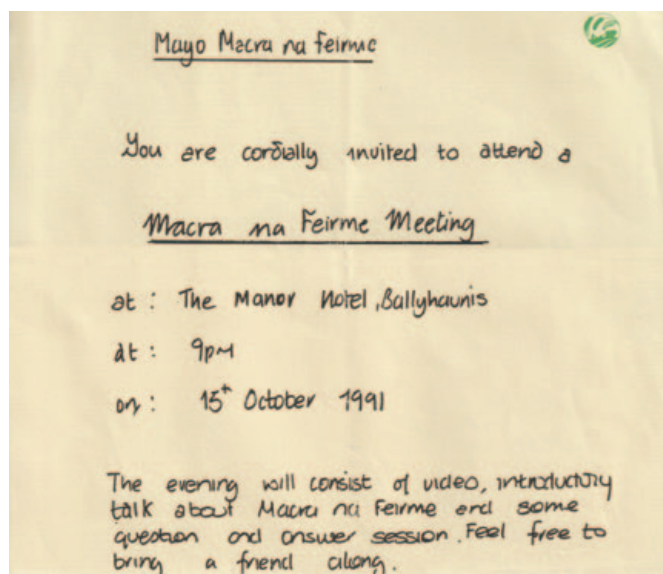 Mayo Macra na Feirme
You are cordially invited to attend a
Macra na Feirme Meeting
at : The Manor Hotel, Ballyhaunis
at : 9pm
on : 15th October 1991
The evening will consist of video, introductory
talk about Macra na Feirme and some
question and answer session. Feel free to
bring a friend along.